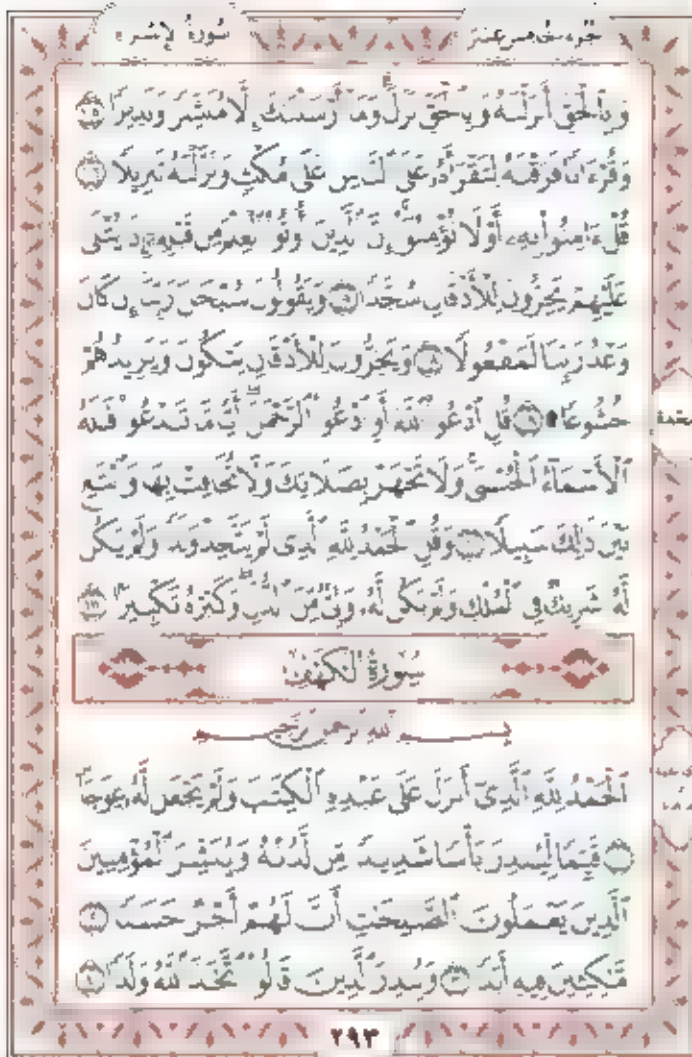 سُورَةُ الإِسْرَاءِ
وَبِالْحَقِّ أَنزَلْنَٰهُ وَبِالْحَقِّ نَزَلَ ۗ وَمَا أَرْسَلْنَٰكَ إِلَّا مُبَشِّرًا وَنَذِيرًا ١٠٥
وَقُرْءَانًا فَرَقْنَٰهُ لِتَقْرَأَهُۥ عَلَى ٱلنَّاسِ عَلَىٰ مُكْثٍ وَنَزَّلْنَٰهُ تَنزِيلًا ١٠٦
قُلْ ءَامِنُوا۟ بِهِۦٓ أَوْ لَا تُؤْمِنُوٓا۟ ۚ إِنَّ ٱلَّذِينَ أُوتُوا۟ ٱلْعِلْمَ مِن قَبْلِهِۦٓ إِذَا يُتْلَىٰ
عَلَيْهِمْ يَخِرُّونَ لِلْأَذْقَانِ سُجَّدًا ١٠٧ وَيَقُولُونَ سُبْحَٰنَ رَبِّنَآ إِن كَانَ
وَعْدُ رَبِّنَا لَمَفْعُولًا ١٠٨ وَيَخِرُّونَ لِلْأَذْقَانِ يَبْكُونَ وَيَزِيدُهُمْ
خُشُوعًا ۩ ١٠٩ قُلِ ٱدْعُوا۟ ٱللَّهَ أَوِ ٱدْعُوا۟ ٱلرَّحْمَٰنَ ۖ أَيًّا مَّا تَدْعُوا۟ فَلَهُ
ٱلْأَسْمَآءُ ٱلْحُسْنَىٰ ۚ وَلَا تَجْهَرْ بِصَلَاتِكَ وَلَا تُخَافِتْ بِهَا وَٱبْتَغِ
بَيْنَ ذَٰلِكَ سَبِيلًا ١١٠ وَقُلِ ٱلْحَمْدُ لِلَّهِ ٱلَّذِى لَمْ يَتَّخِذْ وَلَدًا وَلَمْ يَكُن
لَّهُۥ شَرِيكٌ فِى ٱلْمُلْكِ وَلَمْ يَكُن لَّهُۥ وَلِىٌّ مِّنَ ٱلذُّلِّ ۖ وَكَبِّرْهُ تَكْبِيرًۢا ١١١
سُورَةُ الكَهْفِ
بِسْمِ ٱللَّهِ ٱلرَّحْمَٰنِ ٱلرَّحِيمِ
ٱلْحَمْدُ لِلَّهِ ٱلَّذِىٓ أَنزَلَ عَلَىٰ عَبْدِهِ ٱلْكِتَٰبَ وَلَمْ يَجْعَل لَّهُۥ عِوَجَا ۜ
١ قَيِّمًا لِّيُنذِرَ بَأْسًا شَدِيدًا مِّن لَّدُنْهُ وَيُبَشِّرَ ٱلْمُؤْمِنِينَ
ٱلَّذِينَ يَعْمَلُونَ ٱلصَّٰلِحَٰتِ أَنَّ لَهُمْ أَجْرًا حَسَنًا ٢
مَّٰكِثِينَ فِيهِ أَبَدًا ٣ وَيُنذِرَ ٱلَّذِينَ قَالُوا۟ ٱتَّخَذَ ٱللَّهُ وَلَدًا ٤
٢٩٣